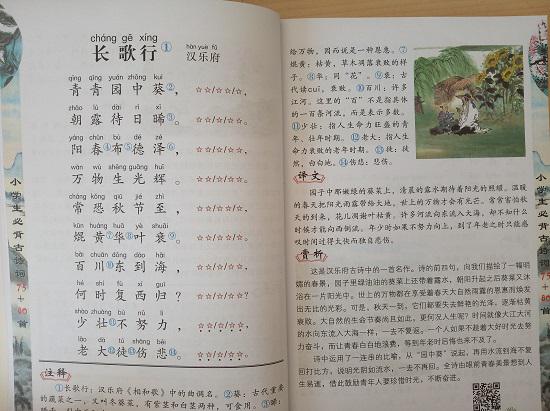 cháng gē xíng
长歌行① 汉乐府
hàn yuè fǔ
qīng qīng yuán zhōng kuí
青青园中葵②，
zhāo lù dài rì xī
朝露待日晞③。
yáng chūn bù dé zé
阳春④布⑤德泽⑥，
wàn wù shēng guāng huī
万物生光辉。
cháng kǒng qiū jié zhì
常恐秋节至，
kūn huáng huā yè shuāi
焜黄⑦华⑧叶衰⑨。
bǎi chuān dōng dào hǎi
百川⑩东到海，
hé shí fù xī guī
何时复西归？
shào zhuàng bù nǔ lì
少壮⑪不努力，
lǎo dà tú shāng bēi
老大⑫徒⑬伤悲⑭。
注释
①长歌行：汉乐府《相和歌》中的曲调名。②葵：古代重要
的蔬菜之一，又叫冬葵菜，有紫茎和白茎两种，可食用。③晞：
小学生必背古诗词75+80首
给万物，因而说是一种恩惠。⑦
焜黄：枯黄，草木凋落衰败的样
子。⑧华：同“花”。⑨衰：古
代读cuī，衰败。⑩百川：许多
江河。这里的“百”不是指具体
的一百条河流，而是表示多数。
⑪少壮：指人生命力旺盛的青
年、壮年时期。⑫老大：指人生
命力衰败的老年时期。⑬徒：徒
然，白白地。⑭伤悲：悲伤。
译文
园子中那嫩绿的葵菜上，清晨的露水期待着阳光的照耀。温暖
的春天把阳光雨露带给大地，世上的万物才会有光芒。常常害怕秋
天的到来，花儿凋谢叶枯黄。许多河流向东流入大海，却不知什么
时候才能向西倒流。年少时如果不努力向上，到了年老之时只能感
叹时间过得太快而独自悲伤。
赏析
这是汉乐府古诗中的一首名作。诗的前四句，向我们描绘了一幅明
媚的春景，园子里绿油油的葵菜上还带着露水，朝阳升起之后葵菜又沐
浴在一片阳光中。世上的万物都在享受着春天大自然雨露的恩惠而焕发
出无比的光彩。可是，秋天一到，它们都要失去鲜艳的光泽，逐渐枯黄
衰败。大自然的生命节奏尚且如此，更何况人生呢？时间就像大江大河
的水向东流入大海一样，一去不复返。一个人如果不趁着大好时光去努
力奋斗，而让青春白白地浪费，等到年老时后悔也来不及了。
诗中运用了一连串的比喻，从“园中葵”说起，再用水流到海不复
回打比方，说明光阴如流水，一去不再回。全诗由眼前青春美景想到人
生易逝，借此鼓励青年人要珍惜时光，不断奋进。
小学生必背古诗词75+80首